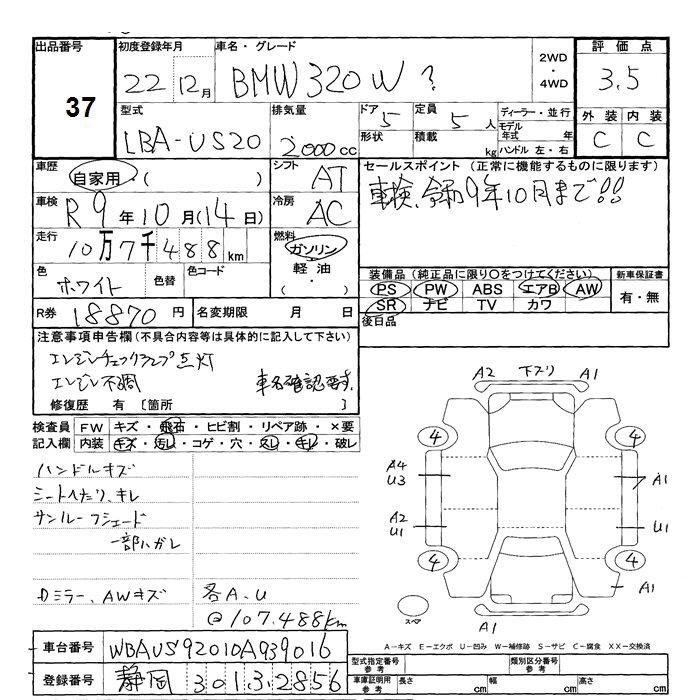 出品番号
37
初度登録年月
22 12月
車名・グレード
BMW 320 W ?
2WD
・
4WD
評価点
3.5
型式
LBA-US20
排気量
2000cc
ドア 5
形状
定員 5 人
積載 kg
ディーラー・並行
モデル年式 年
ハンドル 左・右
外装 内装
C C
車歴
自家用・( )
シフト
AT
車検
R 9年10月(14日)
冷房
AC
走行
10万7千488km
燃料
ガソリン
・
軽油
・
( )
色
ホワイト
色替
色コード
R券
18870 円
名変期限 月 日
セールスポイント (正常に機能するものに限ります)
車検、令和9年10月まで!!
装備品 (純正品に限り○をつけてください)
PS PW ABS エアB AW
SR ナビ TV カワ
新車保証書
有・無
後日品
注意事項申告欄(不具合内容等は具体的に記入して下さい)
エンジンチェックランプ点灯
エンジン不調 車名確認要す
修復歴 有 [箇所 ]
検査員
記入欄
FW キズ・飛石・ヒビ割・リペア跡・×要
内装 キズ・汚レ・コゲ・穴・スレ・キレ・破レ
ハンドルキズ
シートヘたり、キレ
サンルーフシェード
一部ハガレ
Dミラー、AWキズ 各A、U
@107.488km
A2 下スリ A1
4 4
A4
U3
A1
A2
U1
U1
4 4
A1
スペア
A1
A-キズ E-エクボ U-凹み W-補修跡 S-サビ C-腐食 XX-交換済
車台番号
WBAUS92010A939016
登録番号
静岡 301 す 2856
型式指定番号
参考
類別区分番号
参考
車庫証明用
参考
長さ cm
幅 cm
高さ cm